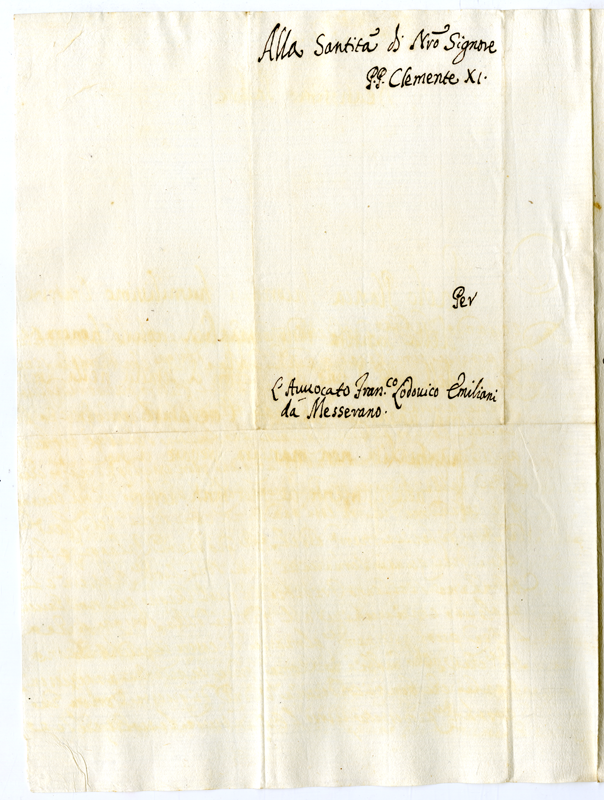 Alla Santità di Nrõ Signore
P.P. Clemente XI.
Per
L'Avvocato Fran.co Lodovico Emiliani
da Messerano.